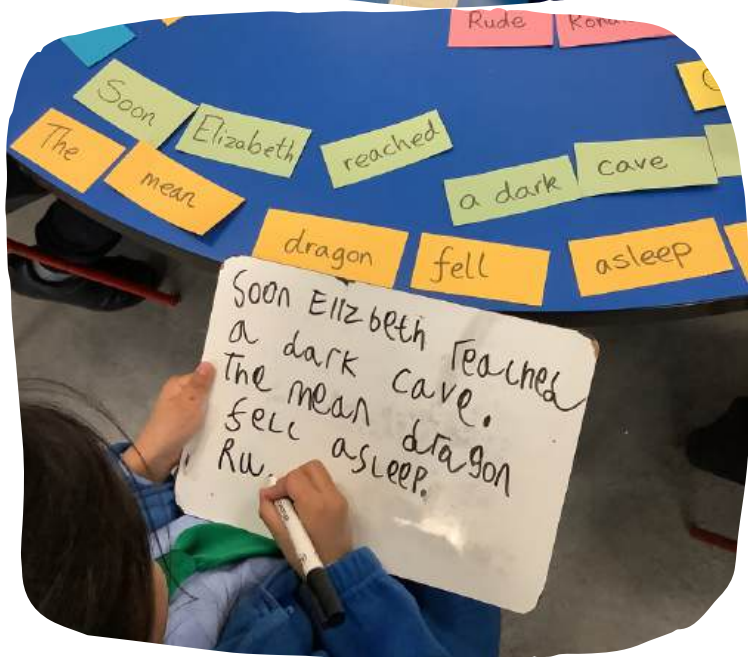 Rude
Soon Elizabeth reached a dark cave
The mean dragon fell asleep
Soon Elizbeth reached
a dark cave.
The mean dragon
fell asleep.
Ru